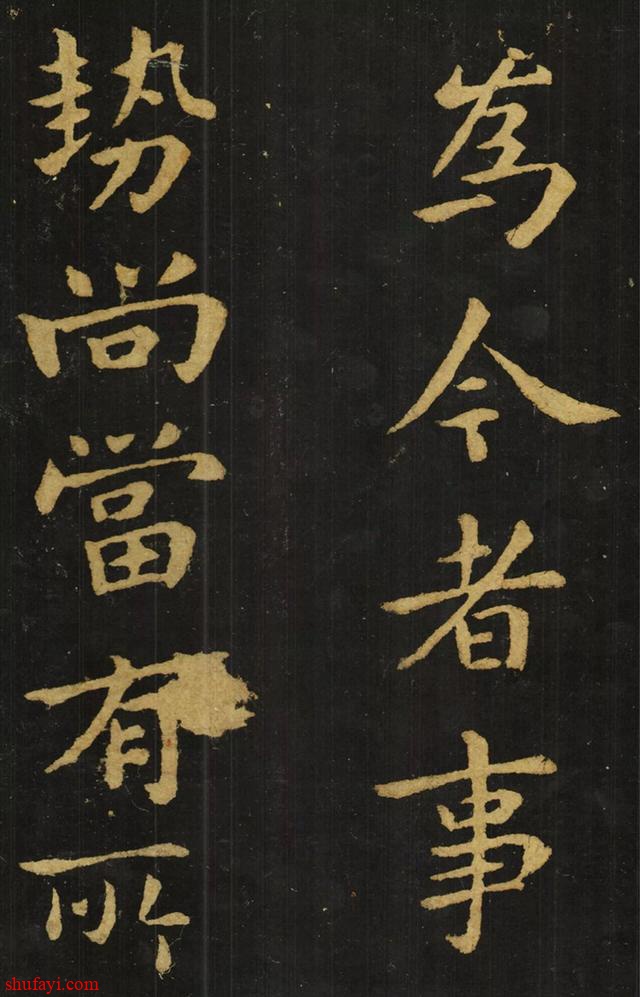 為今者事
勢尚當有所
shufayi.com